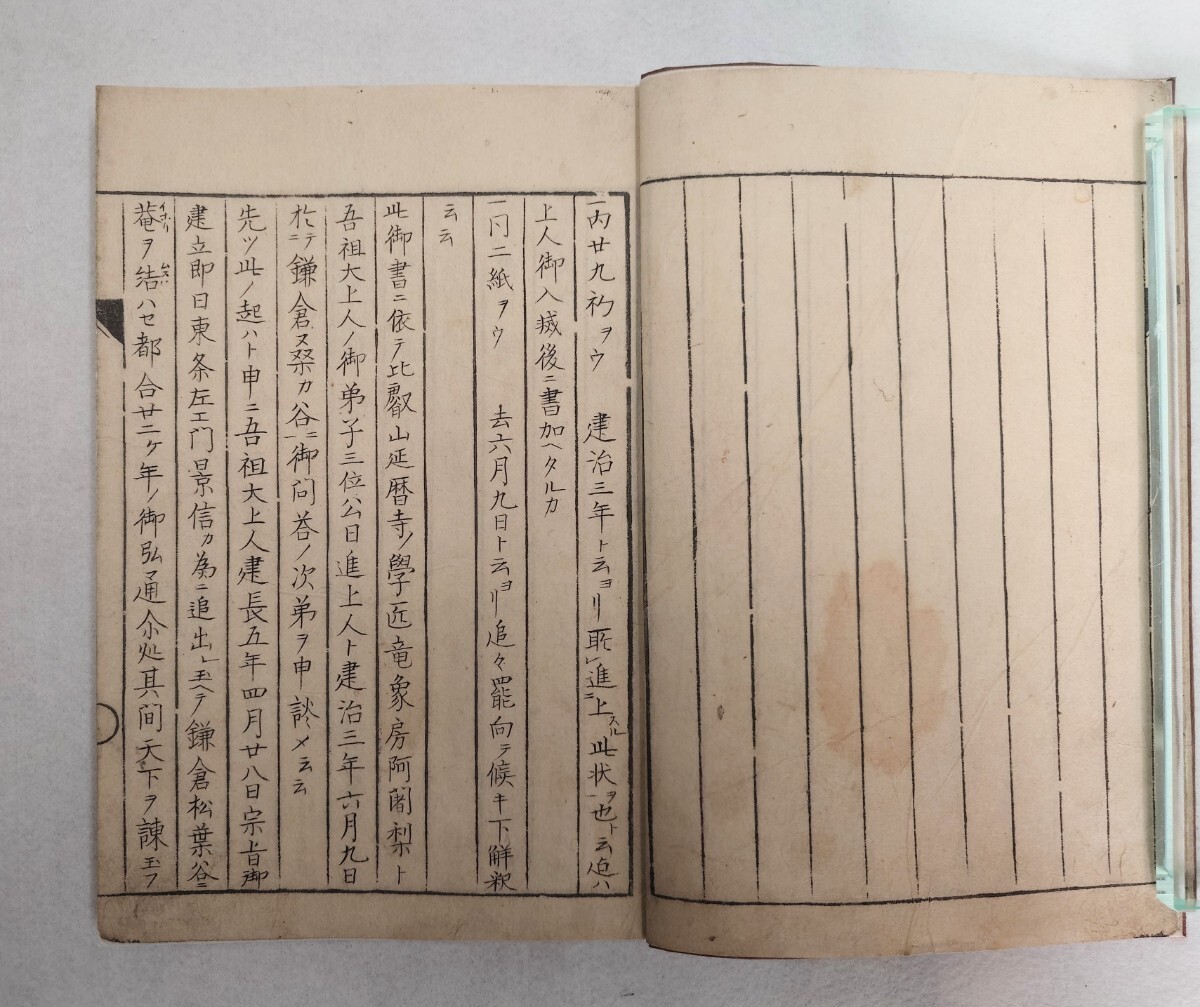 一内廿九初ヲウ 建治三年ト云ヨリ 進上スル此状ヲ也ト云迄ハ
上人御入滅後ニ書加ヘタルカ
一 二紙ヲウ 去六月九日ト云ヨリ追々罷向テ候キ下解釈
云云
此御書ニ依テ比叡山延暦寺ノ學匠竜象房阿闍梨ト
吾祖大上人ノ御弟子三位公日進上人ト建治三年六月九日
於テ鎌倉桑カ谷ニ御问荅ノ次第ヲ申談シメ云云
先ツ此ノ起ハト申ニ吾祖大上人建長五年四月廿八日宗旨御
建立即日東条左エ门景信カ為ニ追出レ玉ヘテ鎌倉松葉谷ニ
菴ヲ結ハセ都合廿二ケ年ノ御弘通尒処其间天下ヲ諌玉フ